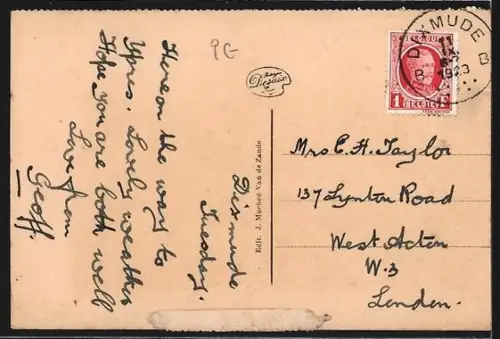 Dixmude
Tuesday.
Here on the way to
Ypres. Lovely weather
Hope you are both well
Love from
Geoff.
9G
Desaix
Edit. J. Muchez-Van de Zande
DIXMUDE
B B
1923
BELGIQUE
1 BELGIË 1
Mrs C. H. Taylor
137 Lynton Road
West Acton
W.3
London.